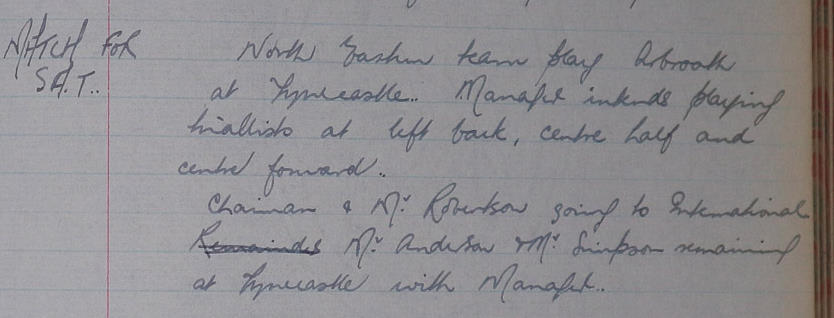 MATCH FOR
SAT..
North Eastern team play Arbroath
at Tynecastle.. Manager intends playing
triallists at left back, centre half and
centre forward..
Chairman & Mr. Robertson going to International
Remainder Mr. Anderson & Mr. Simpson remaining
at Tynecastle with Manager..